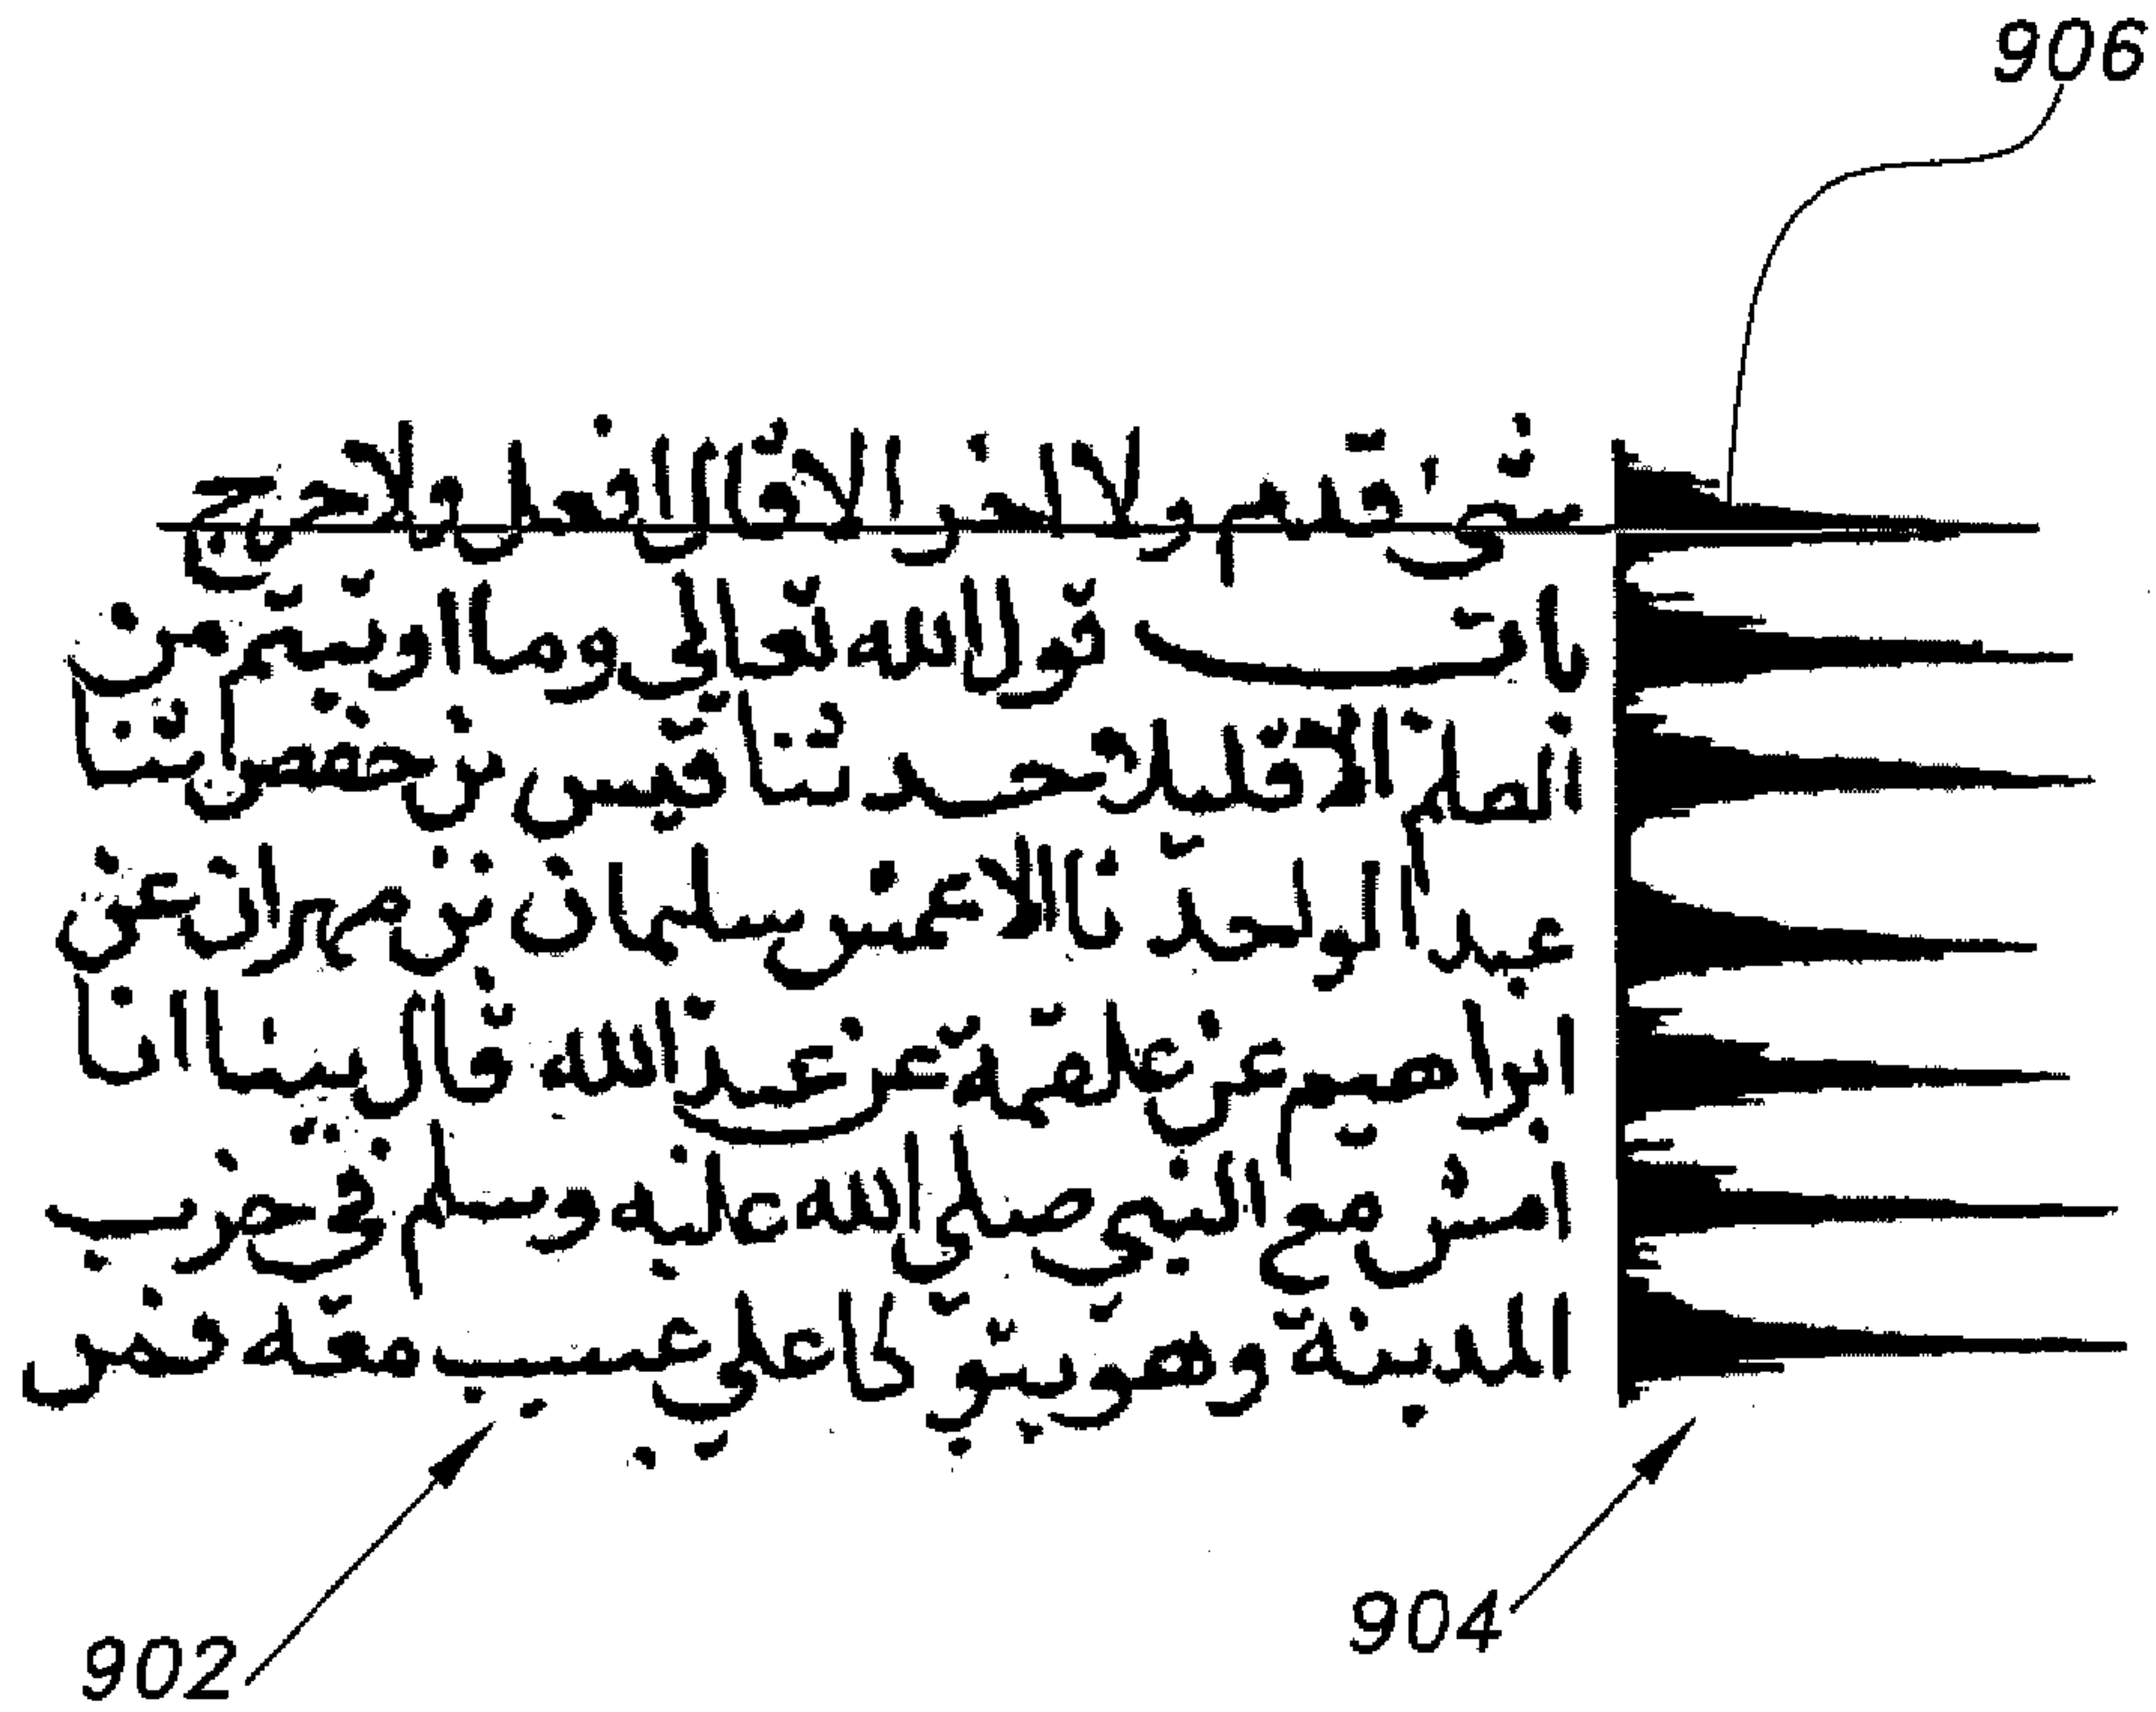 906
باب قول الله تعالى وما اوتيتم من
العلم الا قليلا حدثنا قيس بن حفص ثنا
عبد الواحد نا الاعمش سليمان بن مهران عن
ابراهيم عن علقمة عن عبد الله قال بينا انا
امشي مع النبي صلى الله عليه وسلم في خرب
المدينة وهو يتوكا على عسيب معه فمر
902
904